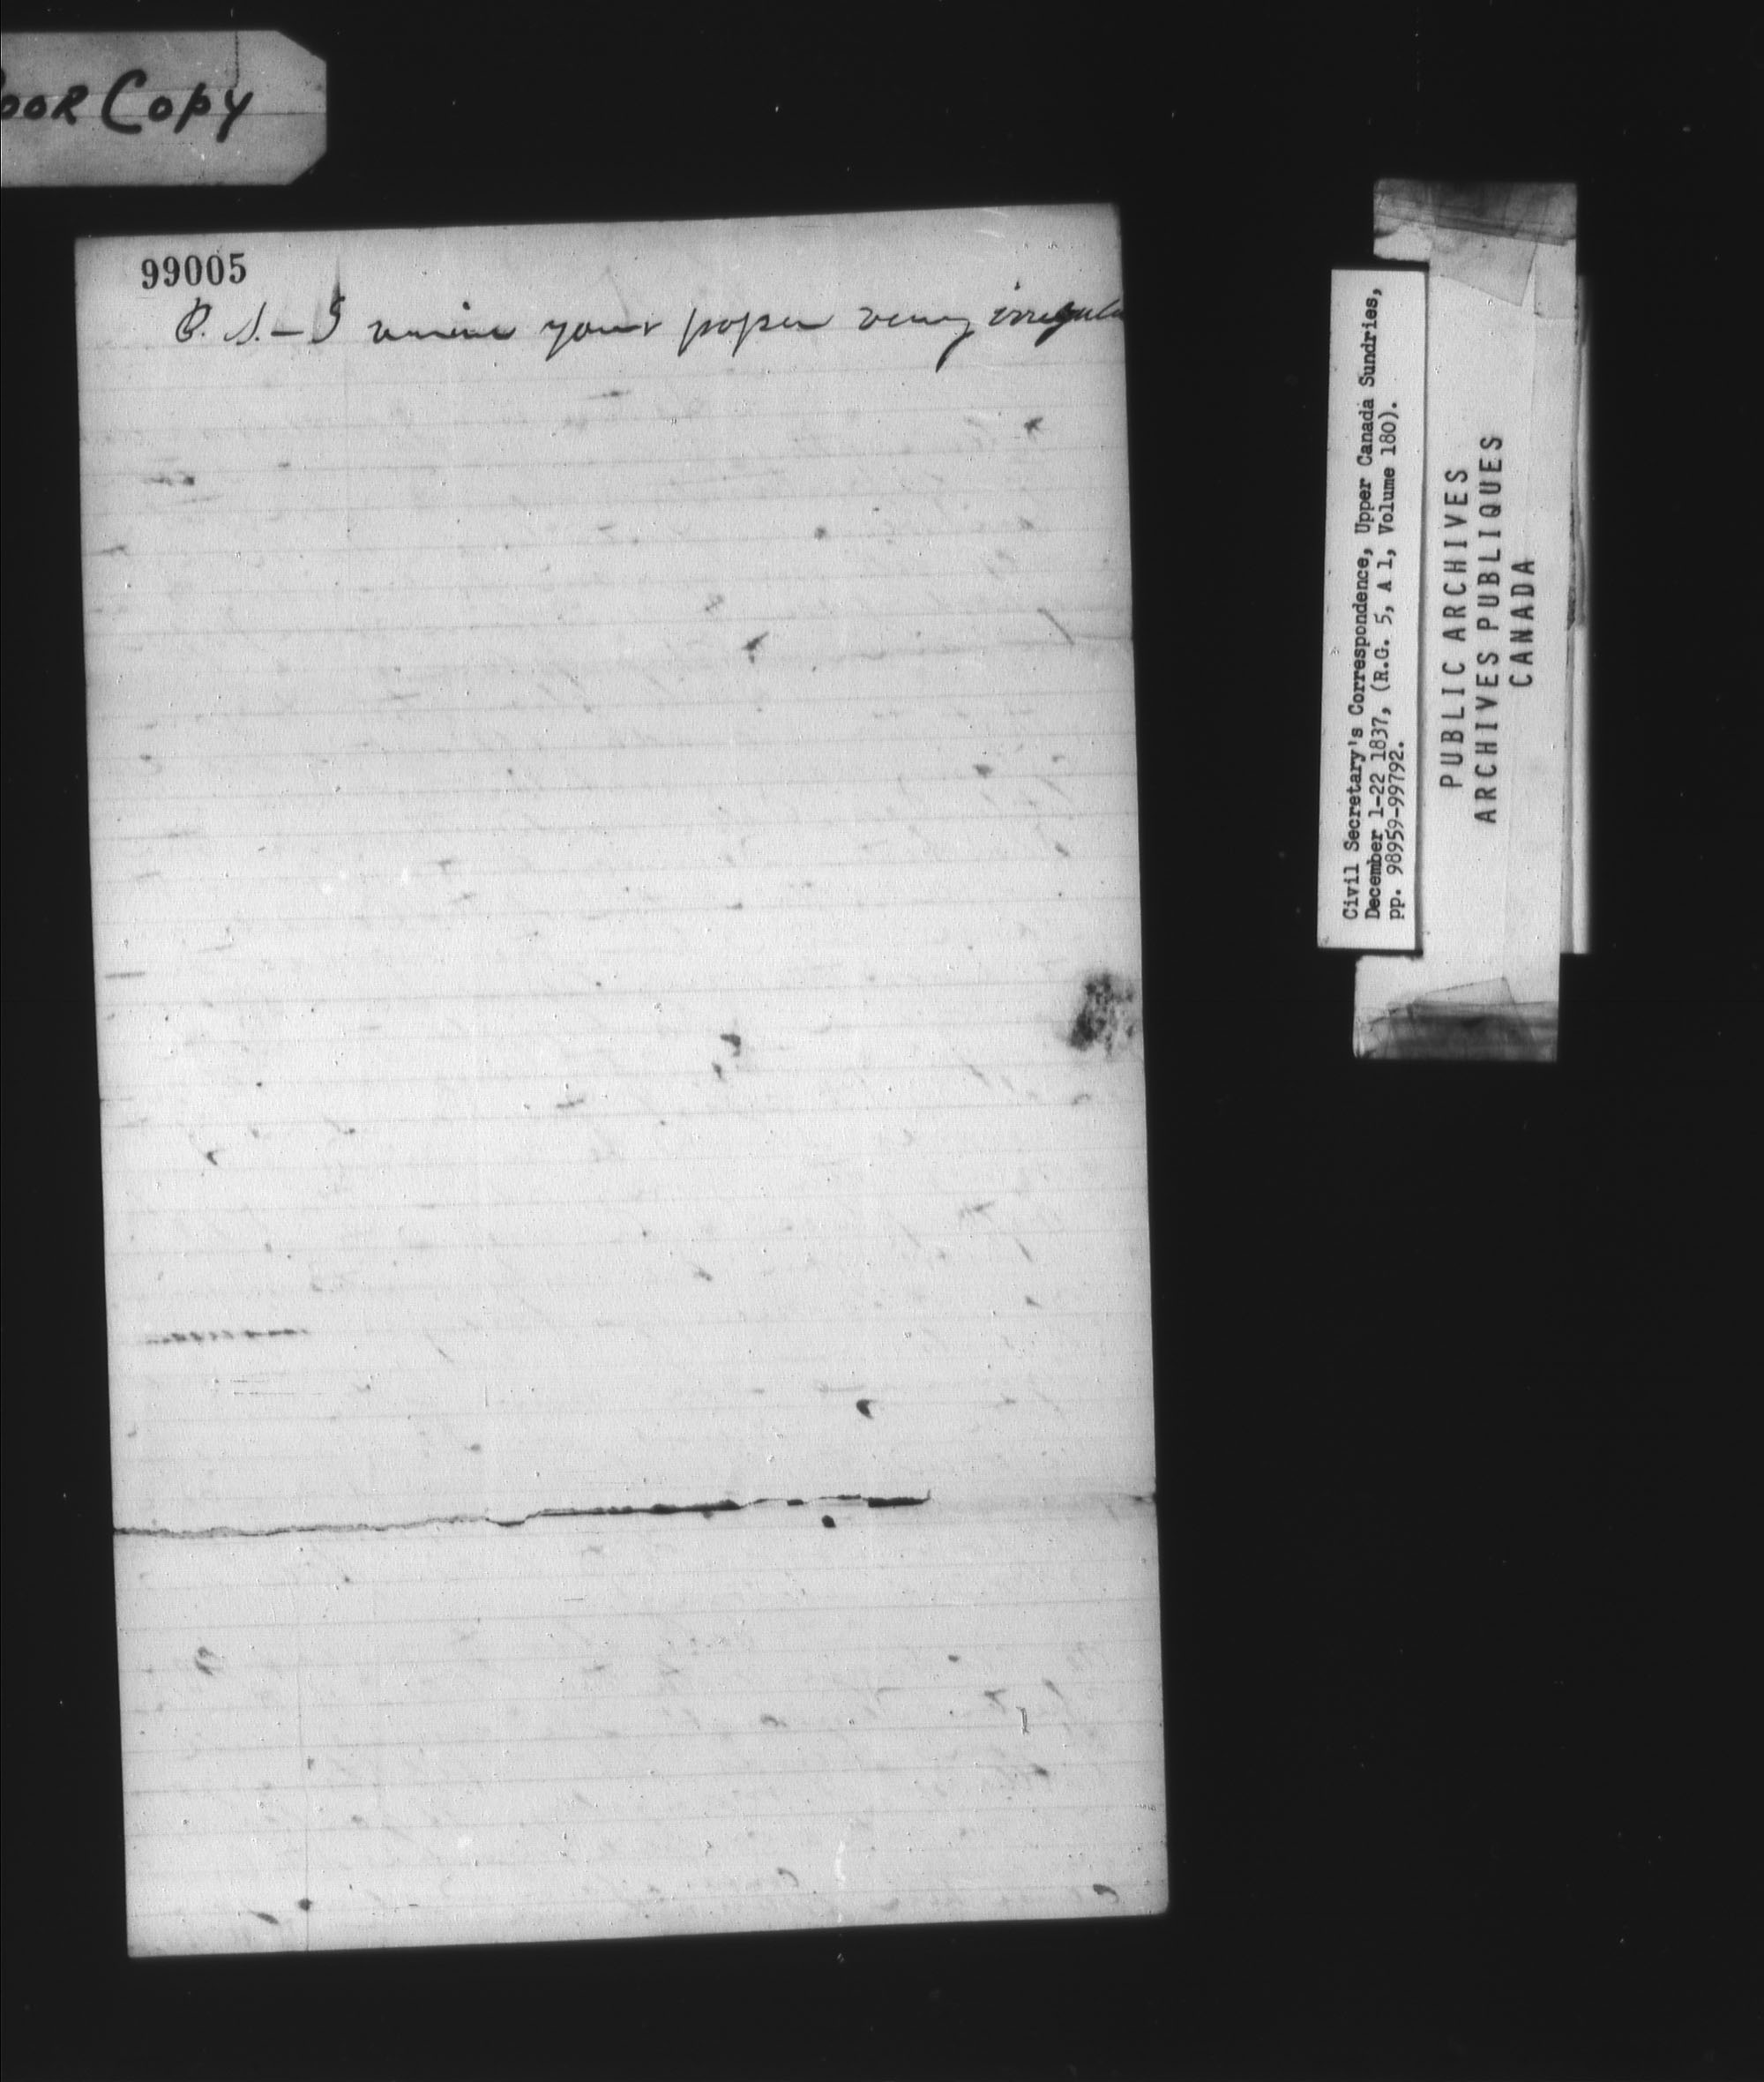 oor Copy
99005
P. S. – I receive your paper very irregula
Civil Secretary's Correspondence, Upper Canada Sundries,
December 1-22 1837, (R.G. 5, A 1, Volume 180).
pp. 98959-99792.
PUBLIC ARCHIVES
ARCHIVES PUBLIQUES
CANADA